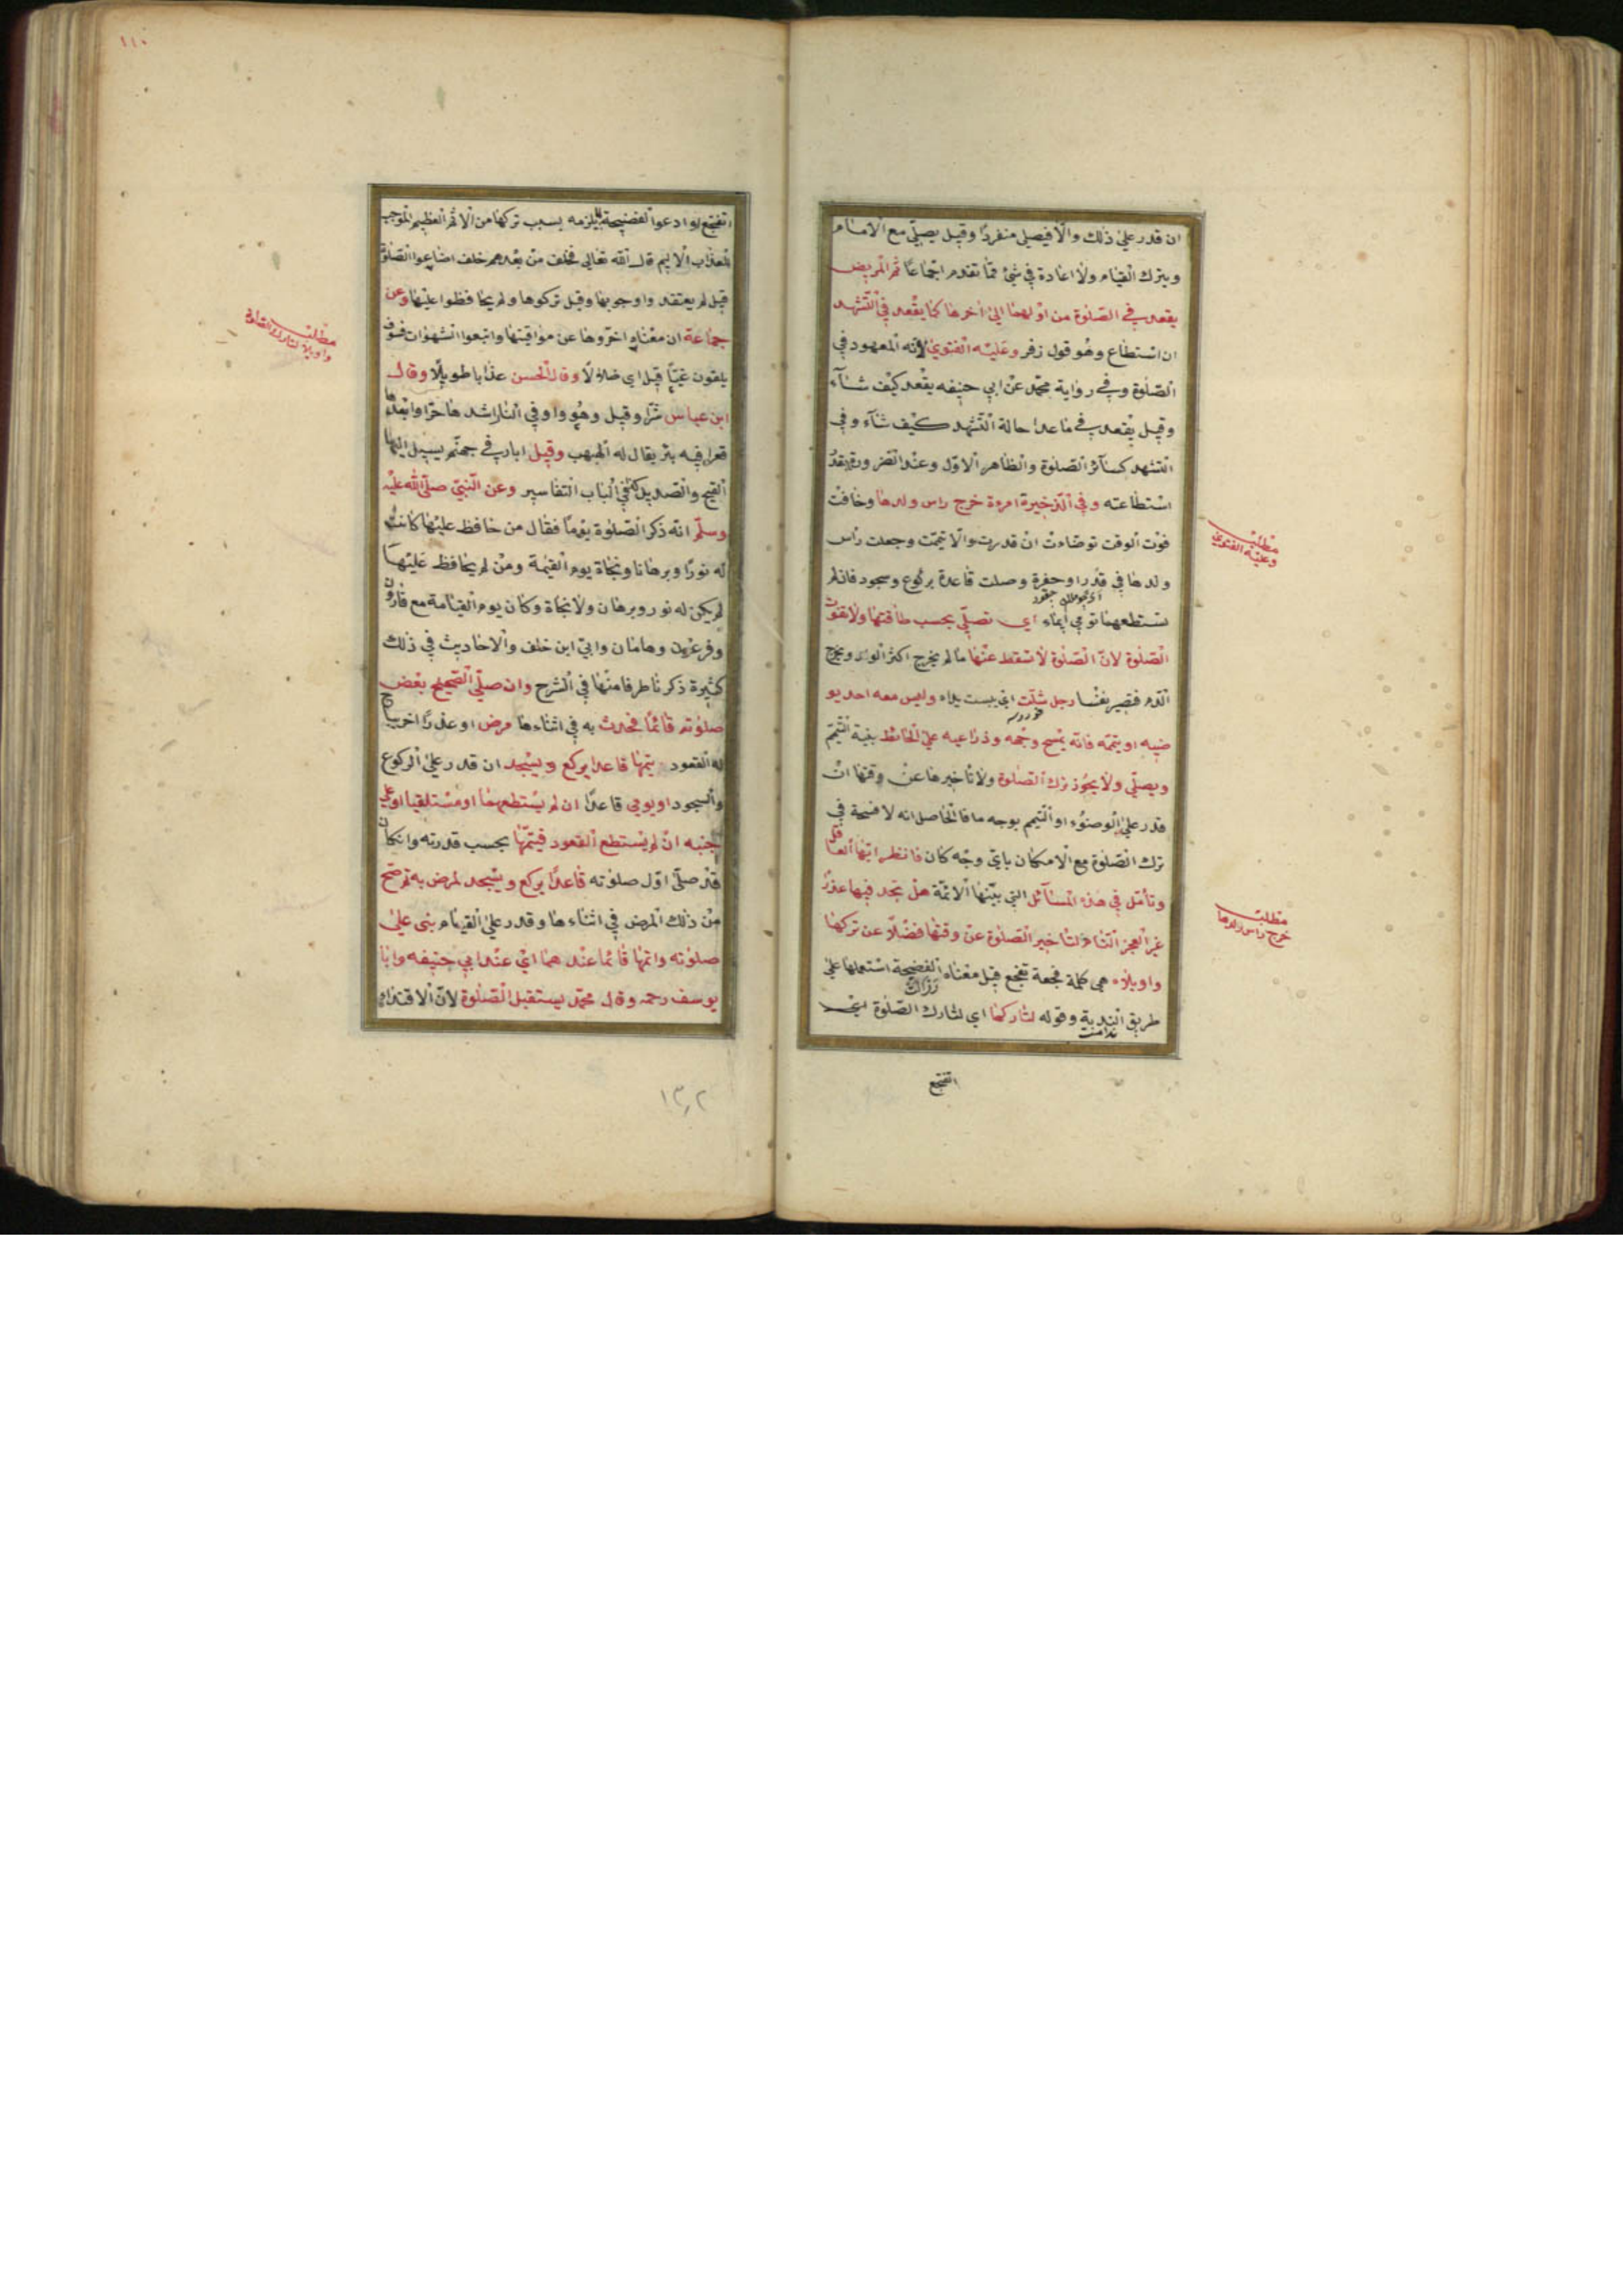 ان قدر على ذلك والا فيصلى منفردا وقيل يصلى مع الامام
ويترك القيام ولا اعادة فى شئ مما تقدم اجماعا ثم المريض
يقعد فى الصلوة من اولها الى اخرها كما يقعد فى التشهد
ان استطاع وهو قول زفر وعليه الفتوى لانه المعهود فى
الصلوة وفى رواية محمد عن ابى حنيفه يقعد كيف شاء
وقيل يقعد فى ما عدا حالة التشهد كيف شاء وفى
التشهد كسائر الصلوة والظاهر الاول وعند الضرورة بقدر
استطاعته وفى الذخيرة امرءة خرج راس ولدها وخافت
فوت الوقت توضاءت ان قدرت والا تيممت وجعلت رأس
ولدها فى قدر او حفرة وصلت قاعدة بركوع وسجود فان لم
چقور
تستطعهما تومى ايماء اى تصلى بحسب طاقتها ولا تفوت
الصلوة لان الصلوة لا تسقط عنها ما لم يخرج اكثر الولد ويخرج
الدم فيصير نفسا رجل شلت اى يبست يداه وليس معه احد يو
ضيه او ييممه فانه يمسح وجهه وذراعيه على الحائط بنية التيمم
ويصلى ولا يجوز ترك الصلوة ولا تأخيرها عن وقتها ان
قدر على الوضوء او التيمم بوجه ما فالحاصل انه لا فسحة فى
ترك الصلوة مع الامكان باى وجه كان فانظر ايها العاقل
وتأمل فى هذه المسائل التى بينها الائمة هل تجد فيها عذرا
غير العجز التام لتأخير الصلوة عن وقتها فضلا عن تركها
واويلاه هى كلمة فجعة تفجع قيل معناه الفضيحة استعملها على
طريق الندبة وقوله لتاركها اى لتارك الصلوة اى
ندامت
اتفجع
مطلب
وعليه الفتوى
مطلب
خرج راس ولدها
١١٠
اتفجع او ادعوا الفضيحة لما يلزمه بسبب تركها من الاثم العظيم الموجب
للعذاب الاليم قال الله تعالى فخلف من بعدهم خلف اضاعوا الصلوة
قيل لم يعتقدوا وجوبها وقيل تركوها ولم يحافظوا عليها وعن
جماعة ان معناه اخروها عن مواقيتها واتبعوا الشهوات فسوف
يلقون غيا قيل اى ضلالا وقال الحسن عذابا طويلا وقال
ابن عباس شرا وقيل وهو واد فى النار اشدها حرا وابعدها
قعرا فيه بئر يقال له الهبهب وقيل ابار فى جهنم يسيل اليها
القيح والصديد كله فى لباب التفاسير وعن النبى صلى الله عليه
وسلم انه ذكر الصلوة يوما فقال من حافظ عليها كانت
له نورا وبرهانا ونجاة يوم القيمة ومن لم يحافظ عليها
لم يكن له نور وبرهان ولا نجاة وكان يوم القيامة مع قارون
وفرعون وهامان وابى ابن خلف والاحاديث فى ذلك
كثيرة ذكرنا طرفا منها فى الشرح وان صلى الصحيح بعض
صلوته قائما فحدث به فى اثناءها مرض او عذر اخر يبيح
له القعود يتمها قاعدا يركع ويسجد ان قدر على الركوع
والسجود او يومى قاعدا ان لم يستطعهما او مستلقيا او على
جنبه ان لم يستطع القعود فيتمها بحسب قدرته وان كان
قد صلى اول صلوته قاعدا يركع ويسجد لمرض به ثم صح
من ذلك المرض فى اثناءها وقدر على القيام بنى على
صلوته واتمها قائما عندهما اى عند ابى حنيفه وابا
يوسف رحمه وقال محمد يستقبل الصلوة لان الاقتداء
مطلب
واويلاه لتارك الصلوة
١٣٠٢